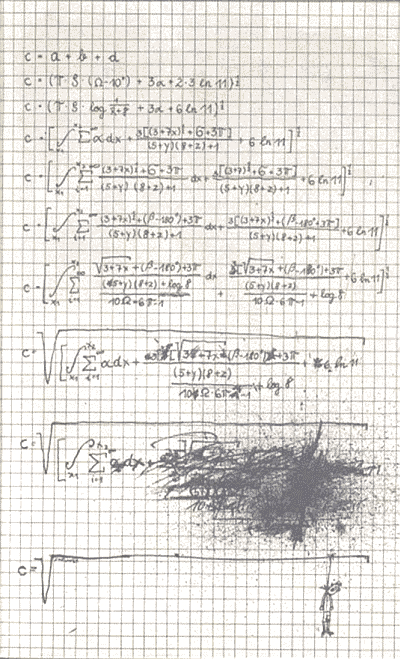 c = a + b + d
c = (π · S · (Ω-10°) + 3α + 2·3 ln 11)½
c = (π · S · log 1/(z+8) + 3α + 6 ln 11)½
c = [∫x₁ x₂ ∑i=1 ∞ α dx + 3[(3+7x)½+6+3π]/((5+y)(8+z)+1) + 6 ln 11]½
c = [∫x₁ x₂ ∑i=1 ∞ ((3+7x)½+6+3π)/((5+y)(8+z)+1) dx + 3[(3+7x)½+6+3π]/((5+y)(8+z)+1) + 6 ln 11]½
c = [∫x₁ x₂ ∑i=1 ∞ ((3+7x)½+(β-180°)+3π)/((5+y)(8+z)+1) dx + 3[(3+7x)½+(β-180°)+3π]/((5+y)(8+z)+1) + 6 ln 11]½
c = [∫x₁ x₂ ∑i=1 ∞ (√(3+7x)+(β-180°)+3π)/((5+y)(8+z)/(10Ω+6π-1)+log 8) dx + 3[√(3+7x)+(β-180°)+3π]/((5+y)(8+z)/(10Ω+6π-1)+log 8) + 6 ln 11]½
c = √[∫x₁ x₂ ∑i=1 ∞ α dx + [√(3+7x)+(β-180°)+3π]/((5+y)(8+z)/(10Ω·6π-1)+log 8) + 6 ln 11
c = √[∫x₁ x₂ ∑i=1 ∞ α dx +
c = √